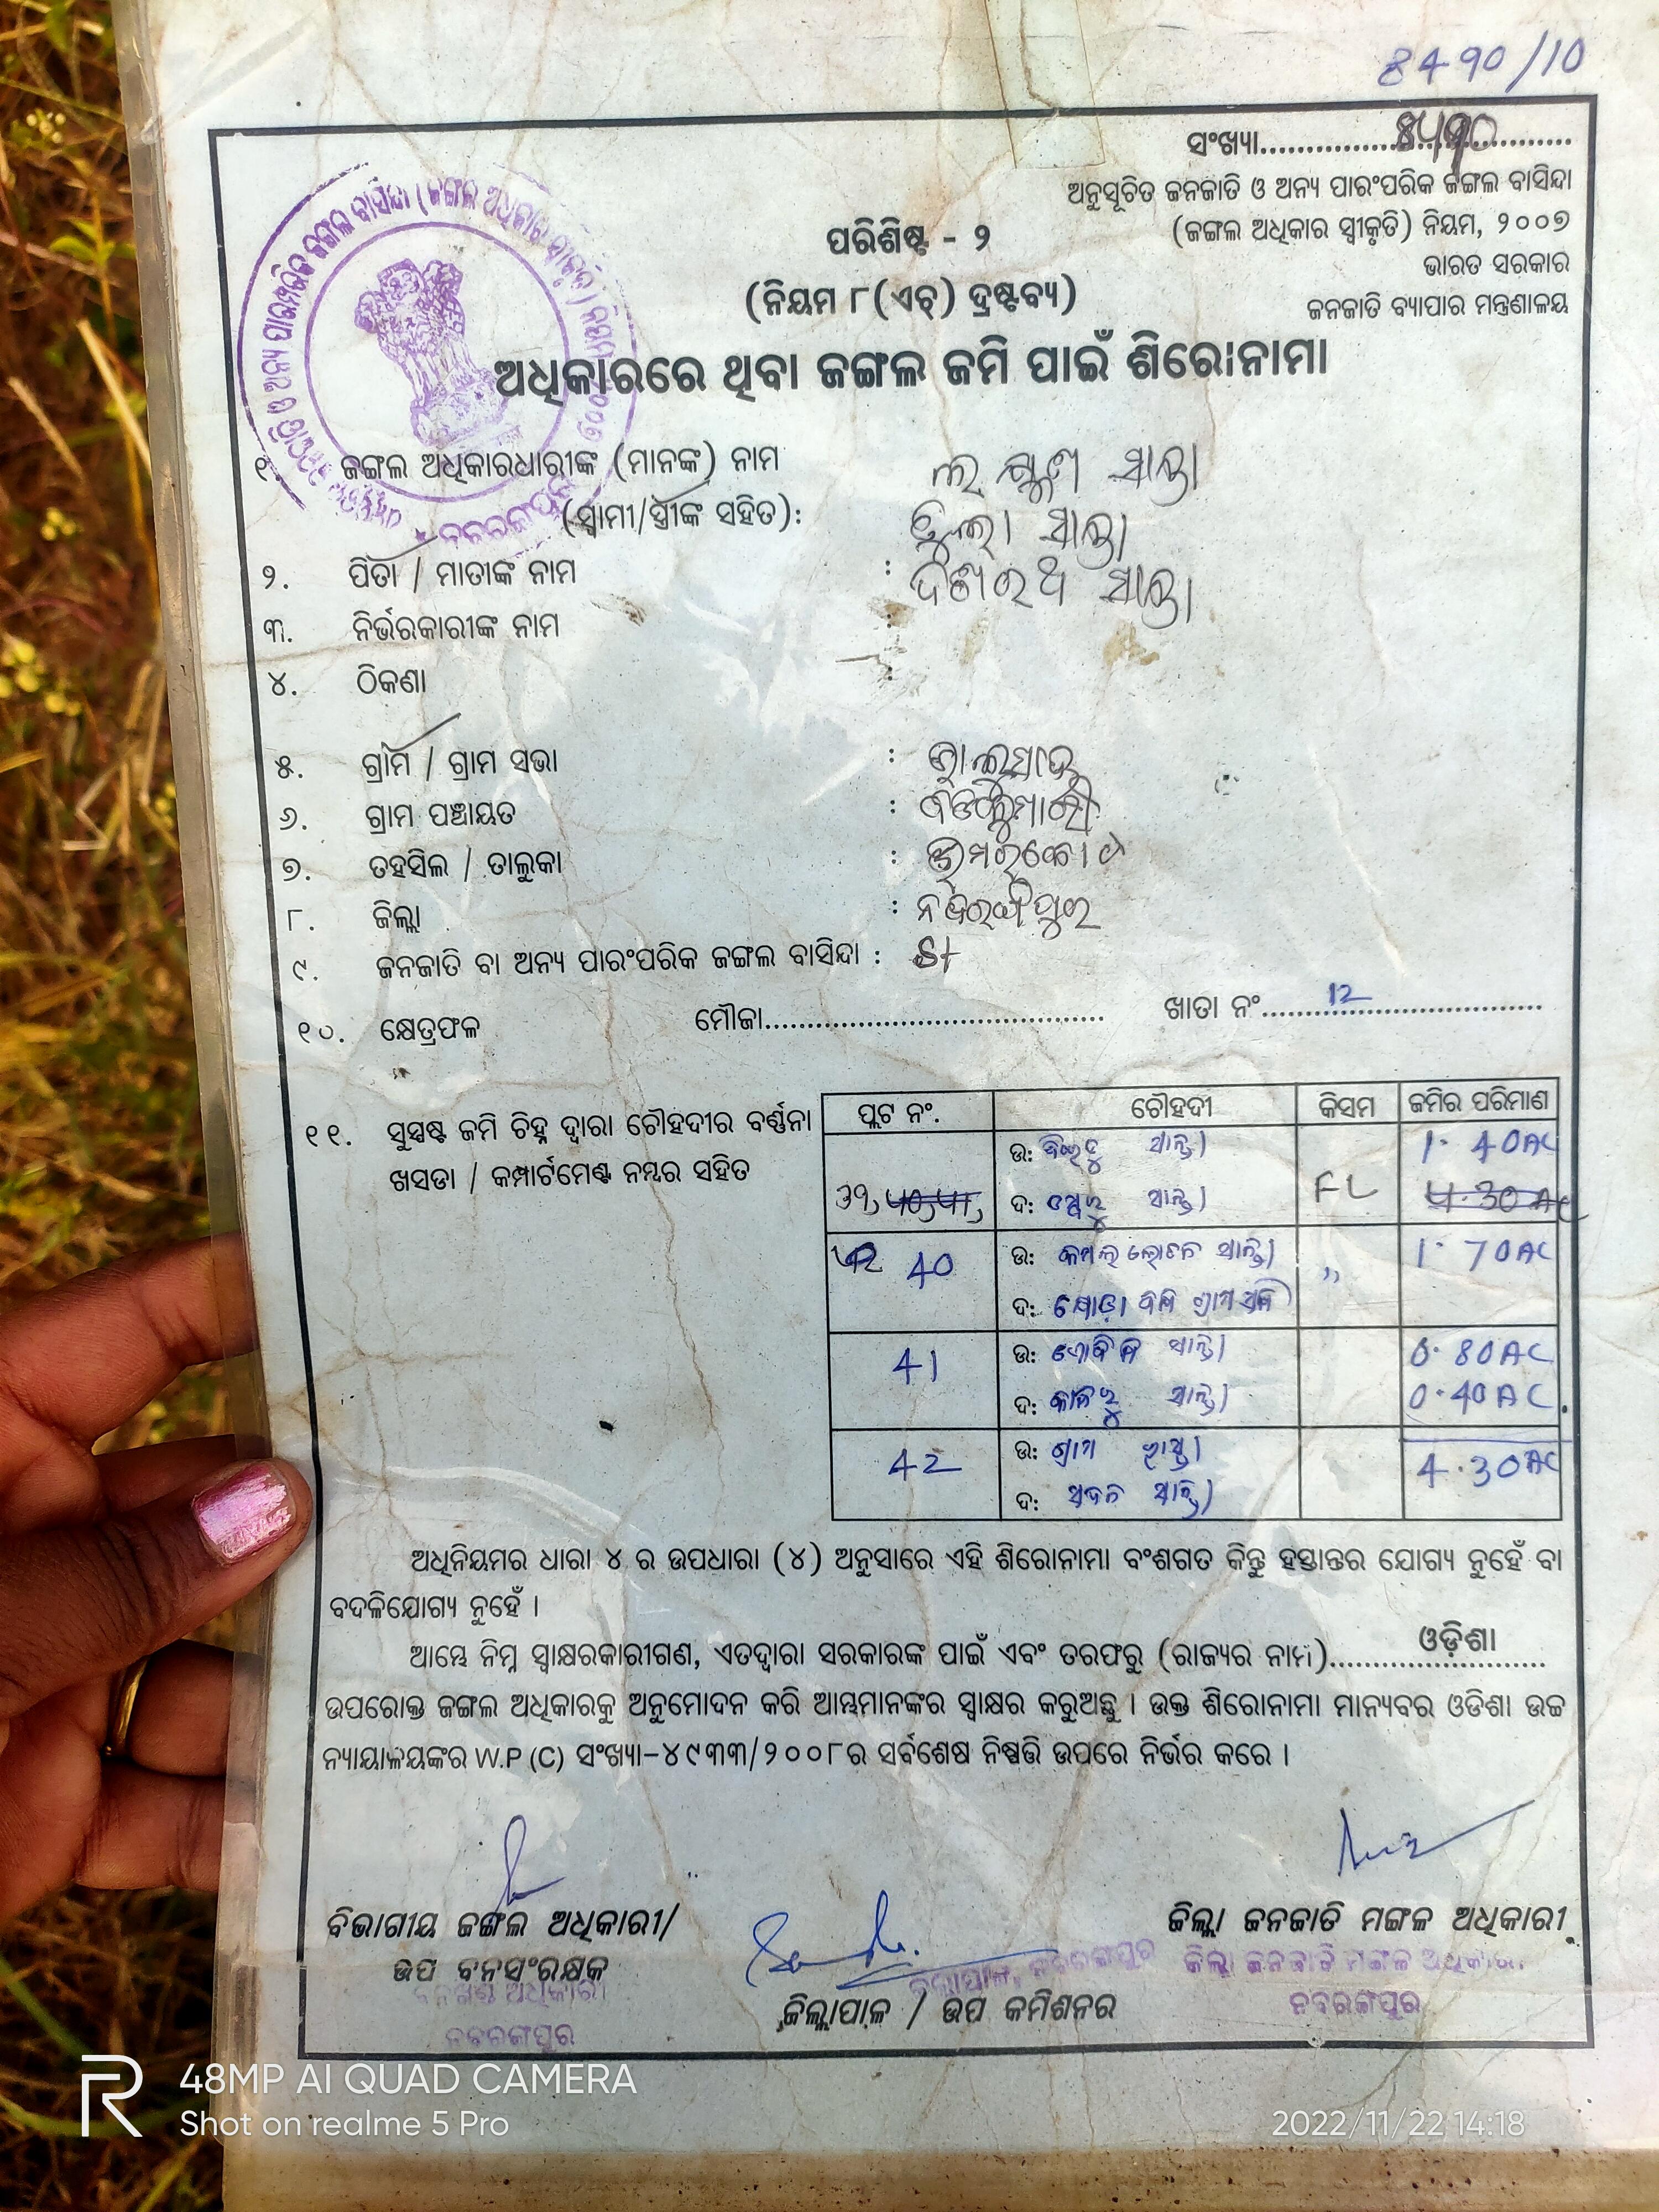 8490/10
ସଂଖ୍ୟା....................
ଅନୁସୂଚିତ ଜନଜାତି ଓ ଅନ୍ୟ ପାରଂପରିକ ଜଙ୍ଗଲ ବାସିନ୍ଦା
(ଜଙ୍ଗଲ ଅଧିକାର ସ୍ୱୀକୃତି) ନିୟମ, ୨୦୦୭
ଭାରତ ସରକାର
ଜନଜାତି ବ୍ୟାପାର ମନ୍ତ୍ରଣାଳୟ
ପରିଶିଷ୍ଟ - ୨
(ନିୟମ ୮(ଏଚ୍) ଦ୍ରଷ୍ଟବ୍ୟ)
ଅଧିକାରରେ ଥିବା ଜଙ୍ଗଲ ଜମି ପାଇଁ ଶିରୋନାମା
୧. ଜଙ୍ଗଲ ଅଧିକାରଧାରୀଙ୍କ (ମାନଙ୍କ) ନାମ ସାନ୍ତା
(ସ୍ୱାମୀ/ସ୍ତ୍ରୀଙ୍କ ସହିତ): ସାନ୍ତା
୨. ପିତା / ମାତାଙ୍କ ନାମ : ଦଶରଥ ସାନ୍ତା
୩. ନିର୍ଭରକାରୀଙ୍କ ନାମ :
୪. ଠିକଣା :
୫. ଗ୍ରାମ / ଗ୍ରାମ ସଭା :
୬. ଗ୍ରାମ ପଞ୍ଚାୟତ :
୭. ତହସିଲ / ତାଲୁକା :
୮. ଜିଲ୍ଲା : ନବରଙ୍ଗପୁର
୯. ଜନଜାତି ବା ଅନ୍ୟ ପାରଂପରିକ ଜଙ୍ଗଲ ବାସିନ୍ଦା : St
୧୦. କ୍ଷେତ୍ରଫଳ ମୌଜା.................... ଖାତା ନଂ.....12...............
୧୧. ସୁସ୍ପଷ୍ଟ ଜମି ଚିହ୍ନ ଦ୍ୱାରା ଚୌହଦୀର ବର୍ଣ୍ଣନା
ଖସଡା / କମ୍ପାର୍ଟମେଣ୍ଟ ନମ୍ବର ସହିତ
ପ୍ଲଟ ନଂ. ଚୌହଦୀ କିସମ ଜମିର ପରିମାଣ
ଉ: ସାନ୍ତା 1.40AC
ଦ: ସାନ୍ତା FL 4.30 AC
40 ଉ: କମଲ ଲୋଚନ ସାନ୍ତା ,, 1.70AC
ଦ:
41 ଉ: ସାନ୍ତା 0.80AC
ଦ: ସାନ୍ତା 0.40AC.
42 ଉ: 4.30AC
ଦ: ସାନ୍ତା
ଅଧିନିୟମର ଧାରା ୪ ର ଉପଧାରା (୪) ଅନୁସାରେ ଏହି ଶିରୋନାମା ବଂଶଗତ କିନ୍ତୁ ହସ୍ତାନ୍ତର ଯୋଗ୍ୟ ନୁହେଁ ବା
ବଦଳିଯୋଗ୍ୟ ନୁହେଁ ।
ଆମ୍ଭେ ନିମ୍ନ ସ୍ୱାକ୍ଷରକାରୀଗଣ, ଏତଦ୍ୱାରା ସରକାରଙ୍କ ପାଇଁ ଏବଂ ତରଫରୁ (ରାଜ୍ୟର ନାମ).......ଓଡ଼ିଶା.......
ଉପରୋକ୍ତ ଜଙ୍ଗଲ ଅଧିକାରକୁ ଅନୁମୋଦନ କରି ଆମ୍ଭମାନଙ୍କର ସ୍ୱାକ୍ଷର କରୁଅଛୁ । ଉକ୍ତ ଶିରୋନାମା ମାନ୍ୟବର ଓଡିଶା ଉଚ୍ଚ
ନ୍ୟାୟାଳୟଙ୍କର W.P (C) ସଂଖ୍ୟା-୪୯୩୩/୨୦୦୮ର ସର୍ବଶେଷ ନିଷ୍ପତ୍ତି ଉପରେ ନିର୍ଭର କରେ ।
ବିଭାଗୀୟ ଜଙ୍ଗଲ ଅଧିକାରୀ/
ଉପ ବନସଂରକ୍ଷକ
ବନଖଣ୍ଡ ଅଧିକାରୀ
ନବରଙ୍ଗପୁର
ଜିଲ୍ଲାପାଳ, ନବରଙ୍ଗପୁର
ଜିଲ୍ଲାପାଳ / ଉପ କମିଶନର
ଜିଲ୍ଲା ଜନଜାତି ମଙ୍ଗଳ ଅଧିକାରୀ
ଜିଲ୍ଲା ଜନଜାତି ମଙ୍ଗଳ ଅଧିକାରୀ
ନବରଙ୍ଗପୁର
48MP AI QUAD CAMERA
Shot on realme 5 Pro
2022/11/22 14:18